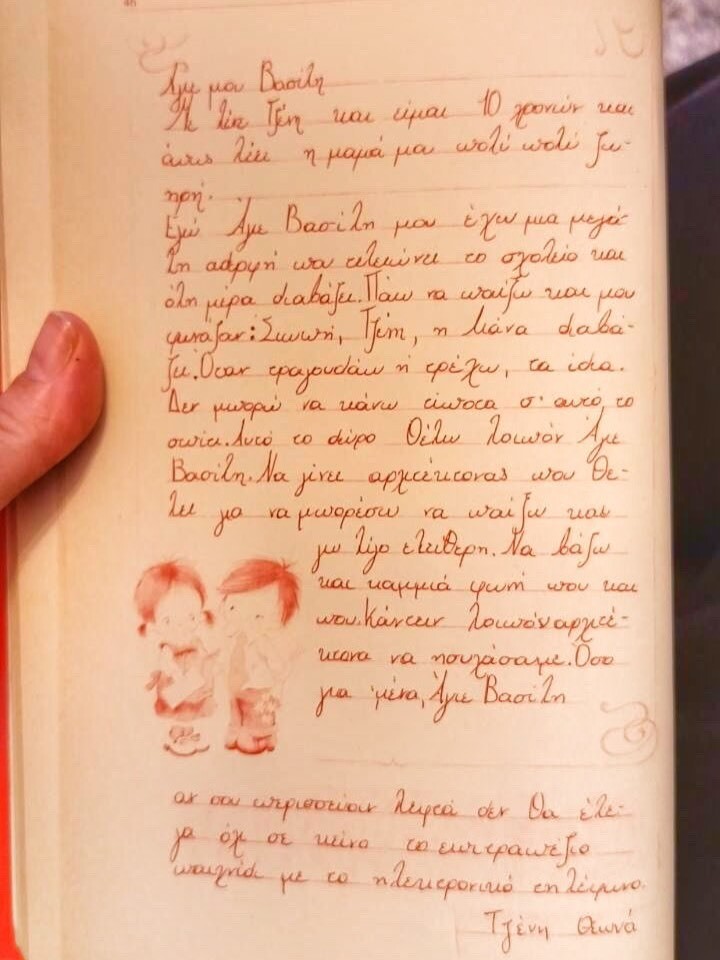 46
Άγιε μου Βασίλη
Με λένε Τζένη και είμαι 10 χρονών και
όπως λέει η μαμά μου πολύ πολύ ζω-
ηρή.
Εγώ Άγιε Βασίλη μου έχω μια μεγά-
λη αδερφή που τελειώνει το σχολείο και
όλη μέρα διαβάζει. Πάω να παίξω και μου
φωνάζουν: Σιωπή, Τζένη, η Μάνα διαβά-
ζει. Όταν τραγουδάω ή τρέχω, τα ίδια.
Δεν μπορώ να κάνω τίποτα σ' αυτό το
σπίτι. Αυτό το δώρο θέλω λοιπόν Άγιε
Βασίλη. Να γίνει αρχιτέκτονας που θέ-
λει για να μπορέσω να παίξω και
γω λίγο ελεύθερη. Να βάζω
και καμμιά φωνή που και
που. Κάνε την λοιπόν αρχιτέ-
κτονα να ησυχάσουμε. Όσο
για 'μένα, Άγιε Βασίλη
αν σου περισσεύουν λεφτά δεν θα έλε-
γα όχι σε κείνο το επιτραπέζιο
παιχνίδι με το ηλεκτρονικό τηλέφωνο.
Τζένη Θωνά